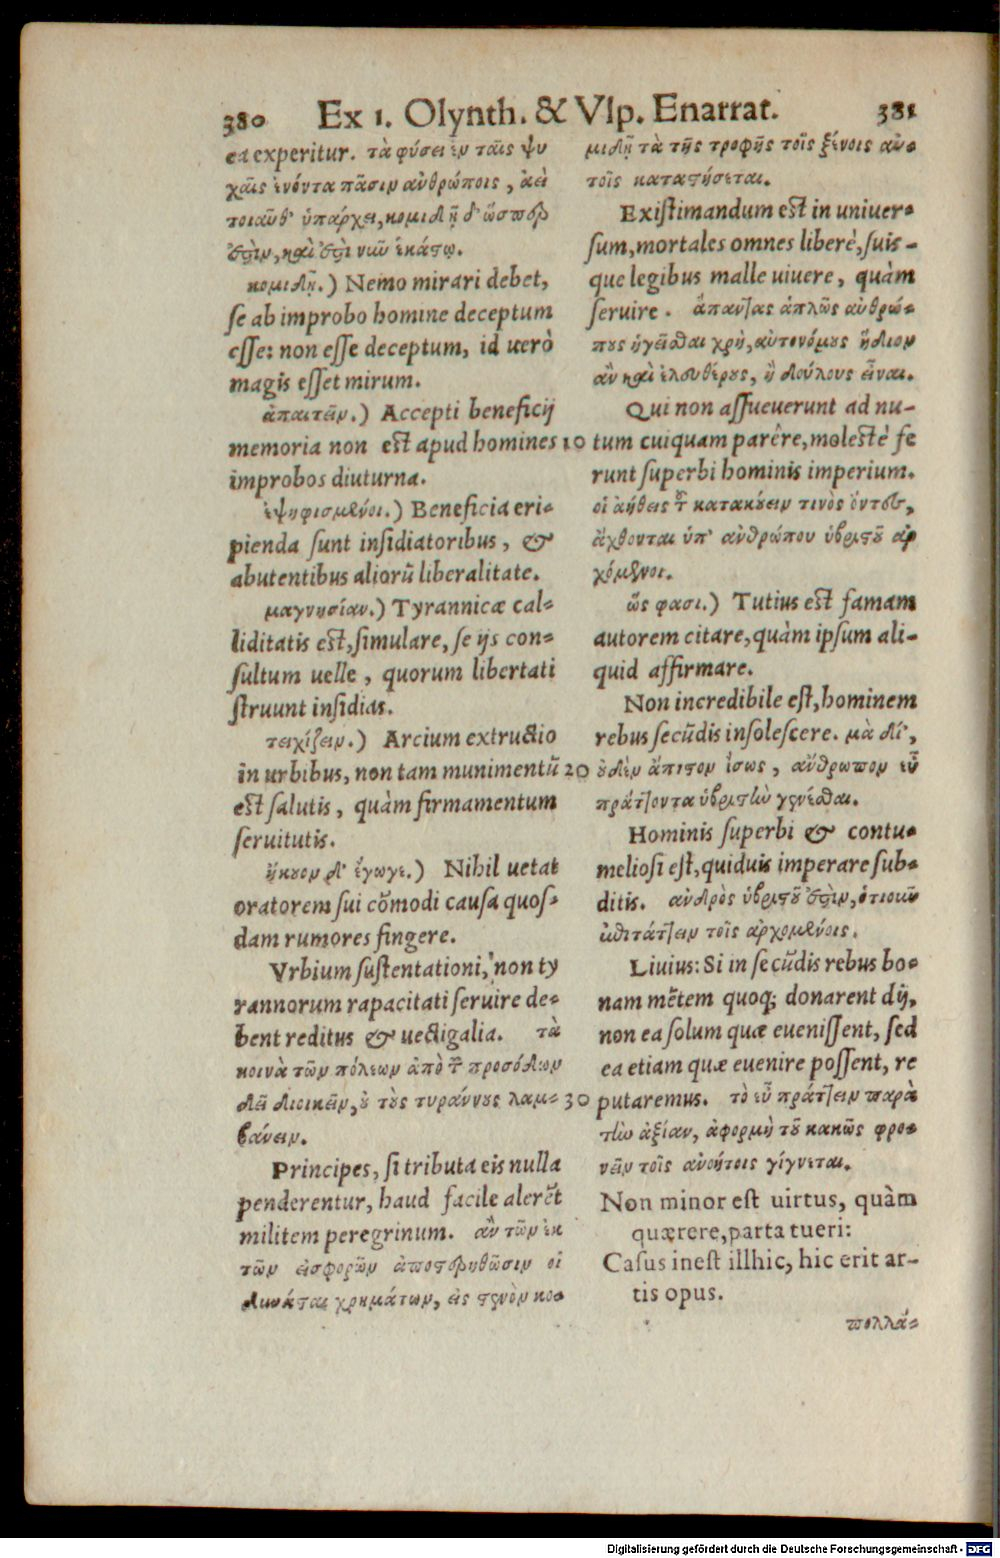 380 Ex 1. Olynth. & Vlp. Enarrat. 381
ea experitur. τὰ φύσει ἐν ταῖς ψυ
χαῖς ἐνόντα πᾶσιν ἀνθρώποις, ἀεὶ
τοιαῦθ᾽ ὑπάρχει, κομιδῇ δ᾽ ὥσπερ
ἐστὶν, καὶ ἐστὶ νῦν ἑκάστῳ.
κομιδῇ.) Nemo mirari debet,
se ab improbo homine deceptum
esse: non esse deceptum, id uerò
magis esset mirum.
ἀπαιτεῖν.) Accepti beneficij
memoria non est apud homines 10
improbos diuturna.
ἐψηφισμένοι.) Beneficia eri-
pienda sunt insidiatoribus, &
abutentibus aliorũ liberalitate.
μαγνησίαν.) Tyrannicæ cal-
liditatis est, simulare, se ijs con-
sultum uelle, quorum libertati
struunt insidias.
τειχίζειν.) Arcium extructio
in urbibus, non tam munimentũ 20
est salutis, quàm firmamentum
seruitutis.
ἤκουον δ᾽ ἔγωγε.) Nihil uetat
oratorem sui cõmodi causa quos-
dam rumores fingere.
Vrbium sustentationi, non ty
rannorum rapacitati seruire de-
bent reditus & uectigalia. τὰ
κοινὰ τῶν πόλεων ἀπὸ τ῀ προσόδων
δεῖ διοικεῖν, ὐ τὸς τυράννους λαμ- 30
βάνειν.
Principes, si tributa eis nulla
penderentur, haud facile alerẽt
militem peregrinum. ἂν τῶν ἐκ
τῶν εἰσφορῶν ἀποστερηθῶσιν οἱ
δυνάσται χρημάτων, εἰς στενὸν κο-
μιδῇ τὰ τῆς τροφῆς τοῖς ξένοις αὐ-
τοῖς καταστήσεται.
Existimandum est in uniuer-
sum, mortales omnes liberè, suis-
que legibus malle uiuere, quàm
seruire. ἅπαντας ἁπλῶς ἀνθρώ-
πους ἡγεῖσθαι χρὴ, αὐτονόμους ἥδιον
ἂν καὶ ἐλευθέρους, ἢ δούλους εἶναι.
Qui non assueuerunt ad nu-
tum cuiquam parêre, molestè fe
runt superbi hominis imperium.
οἱ ἀήθεις τ῀ κατακούειν τινὸς ὄντες,
ἄχθονται ὑπ᾽ ἀνθρώπου ὑβριστοῦ ἀρ
χόμενοι.
ὥς φασι.) Tutius est famam
autorem citare, quàm ipsum ali-
quid affirmare.
Non incredibile est, hominem
rebus secũdis insolescere. μὰ δί᾽,
ὐδὲν ἄπιστον ἴσως, ἄνθρωπον εὖ
πράττοντα ὑβριστὴν γενέσθαι.
Hominis superbi & contu-
meliosi est, quiduis imperare sub-
ditis. ἀνδρὸς ὑβριστοῦ ἐστὶν, ὁτιοῦν
ἐπιτάττειν τοῖς ἀρχομένοις.
Liuius: Si in secũdis rebus bo-
nam mẽtem quoq; donarent dij,
non ea solum quæ euenissent, sed
ea etiam quæ euenire possent, re
putaremus. τὸ εὖ πράττειν παρὰ
τὴν ἀξίαν, ἀφορμὴ τοῦ κακῶς φρο-
νεῖν τοῖς ἀνοήτοις γίγνεται.
Non minor est uirtus, quàm
quærere, parta tueri:
Casus inest illhic, hic erit ar-
tis opus.
πολλά-
Digitalisierung gefördert durch die Deutsche Forschungsgemeinschaft - DFG